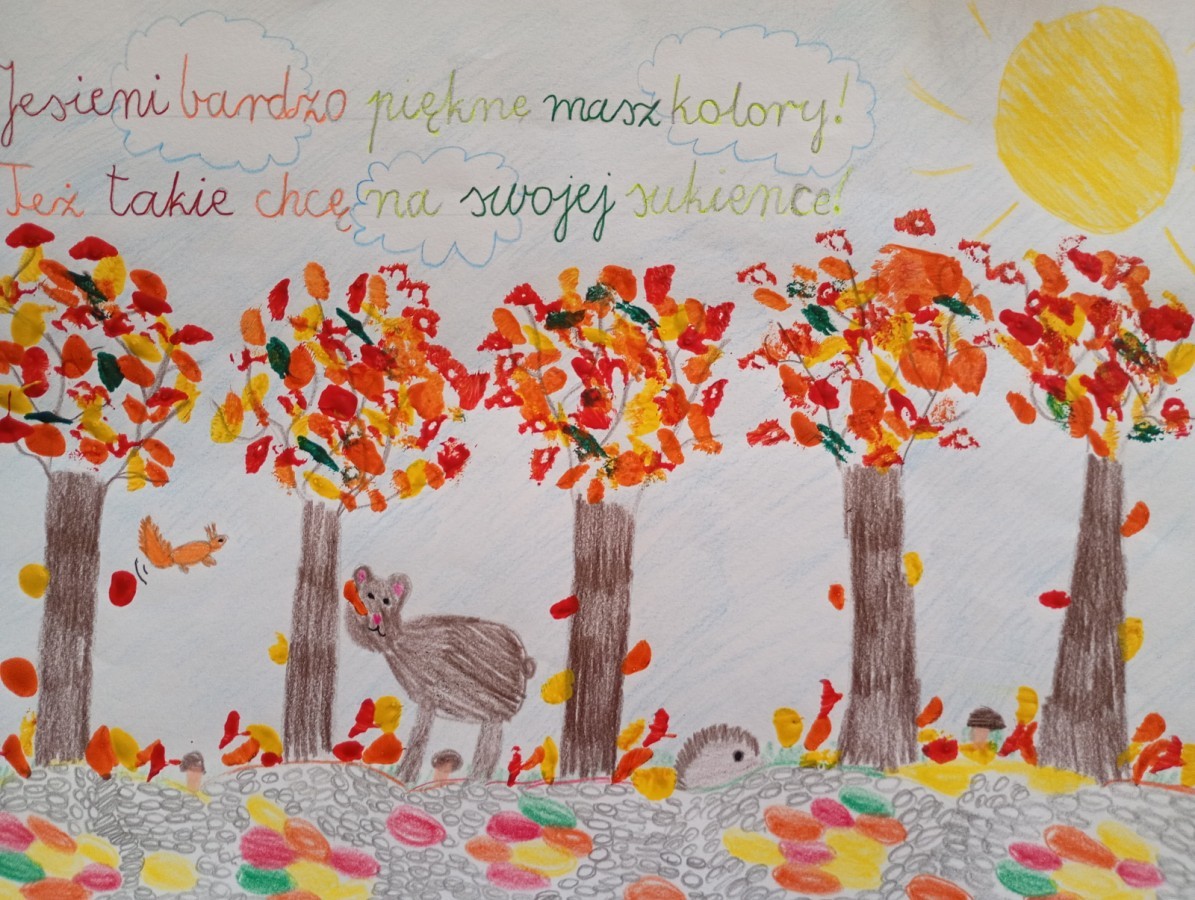 Jesieni bardzo piękne masz kolory!
Też takie chcę na swojej sukience!